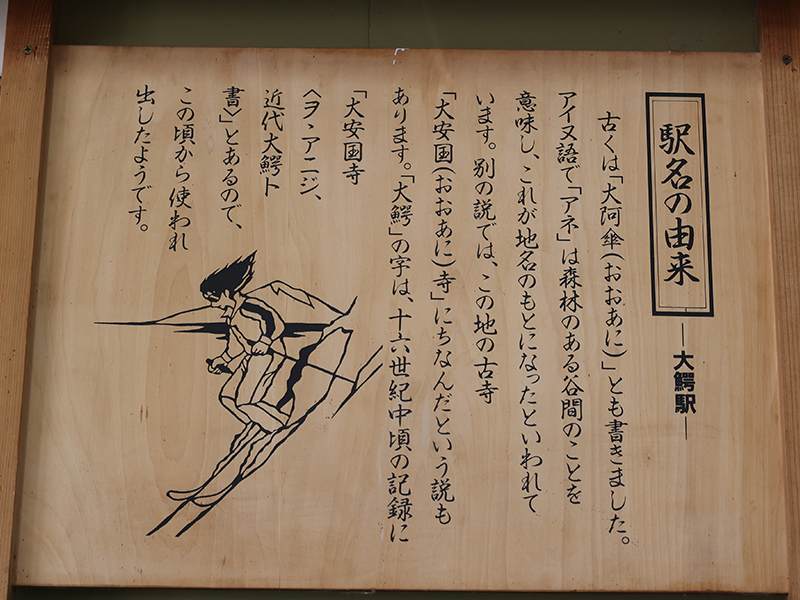 駅名の由来
―大鰐駅―
古くは「大阿傘(おおあに)」とも書きました。
アイヌ語で「アネ」は森林のある谷間のことを
意味し、これが地名のもとになったといわれて
います。別の説では、この地の古寺
「大安国(おおあに)寺」にちなんだという説も
あります。「大鰐」の字は、十六世紀中頃の記録に
「大安国寺
〈ヲヽアニジ、
近代大鰐ト
書〉」とあるので、
この頃から使われ
出したようです。